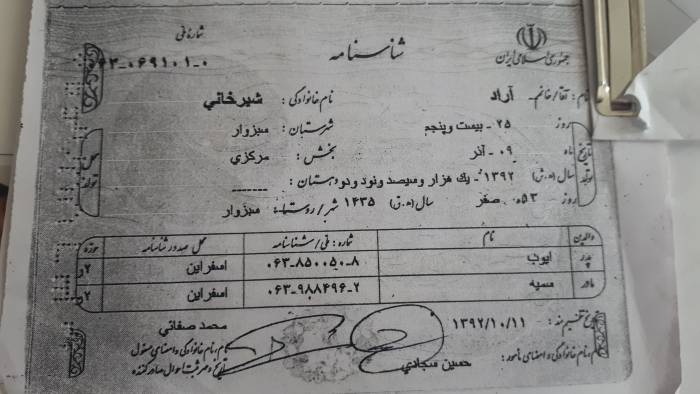 جمهوری اسلامی ایران
شناسنامه
شماره ملی
۰۶۳-۰۶۹۱۰۱-۰
نام: آقا/خانم- آراد نام خانوادگی: شیرخانی
روز ۲۵ - بیست و پنجم شهرستان: سبزوار
ماه ۰۹ - آذر بخش: مرکزی
سال (ه.ش) ۱۳۹۲- یک هزار و سیصد و نود و دو دهستان: ------
صفر سال (ه.ق) ۱۴۳۵ شهر/روستا: سبزوار
تاریخ تولد
محل تولد
والدین نام شماره: ملی/شناسنامه محل صدور شناسنامه حوزه
پدر ایوب ۰۶۳-۸۵۰۰۵۰-۸ اسفراین ۲
مادر ۰۶۳-۹۸۸۴۹۶-۲ اسفراین ۲
تاریخ تنظیم سند: ۱۳۹۲/۱۰/۱۱ محمد صفائی
نام، نام خانوادگی و امضای مامور: حسین سجادی
نام، نام خانوادگی و امضای مسئول
و مهر ثبت احوال صادرکننده